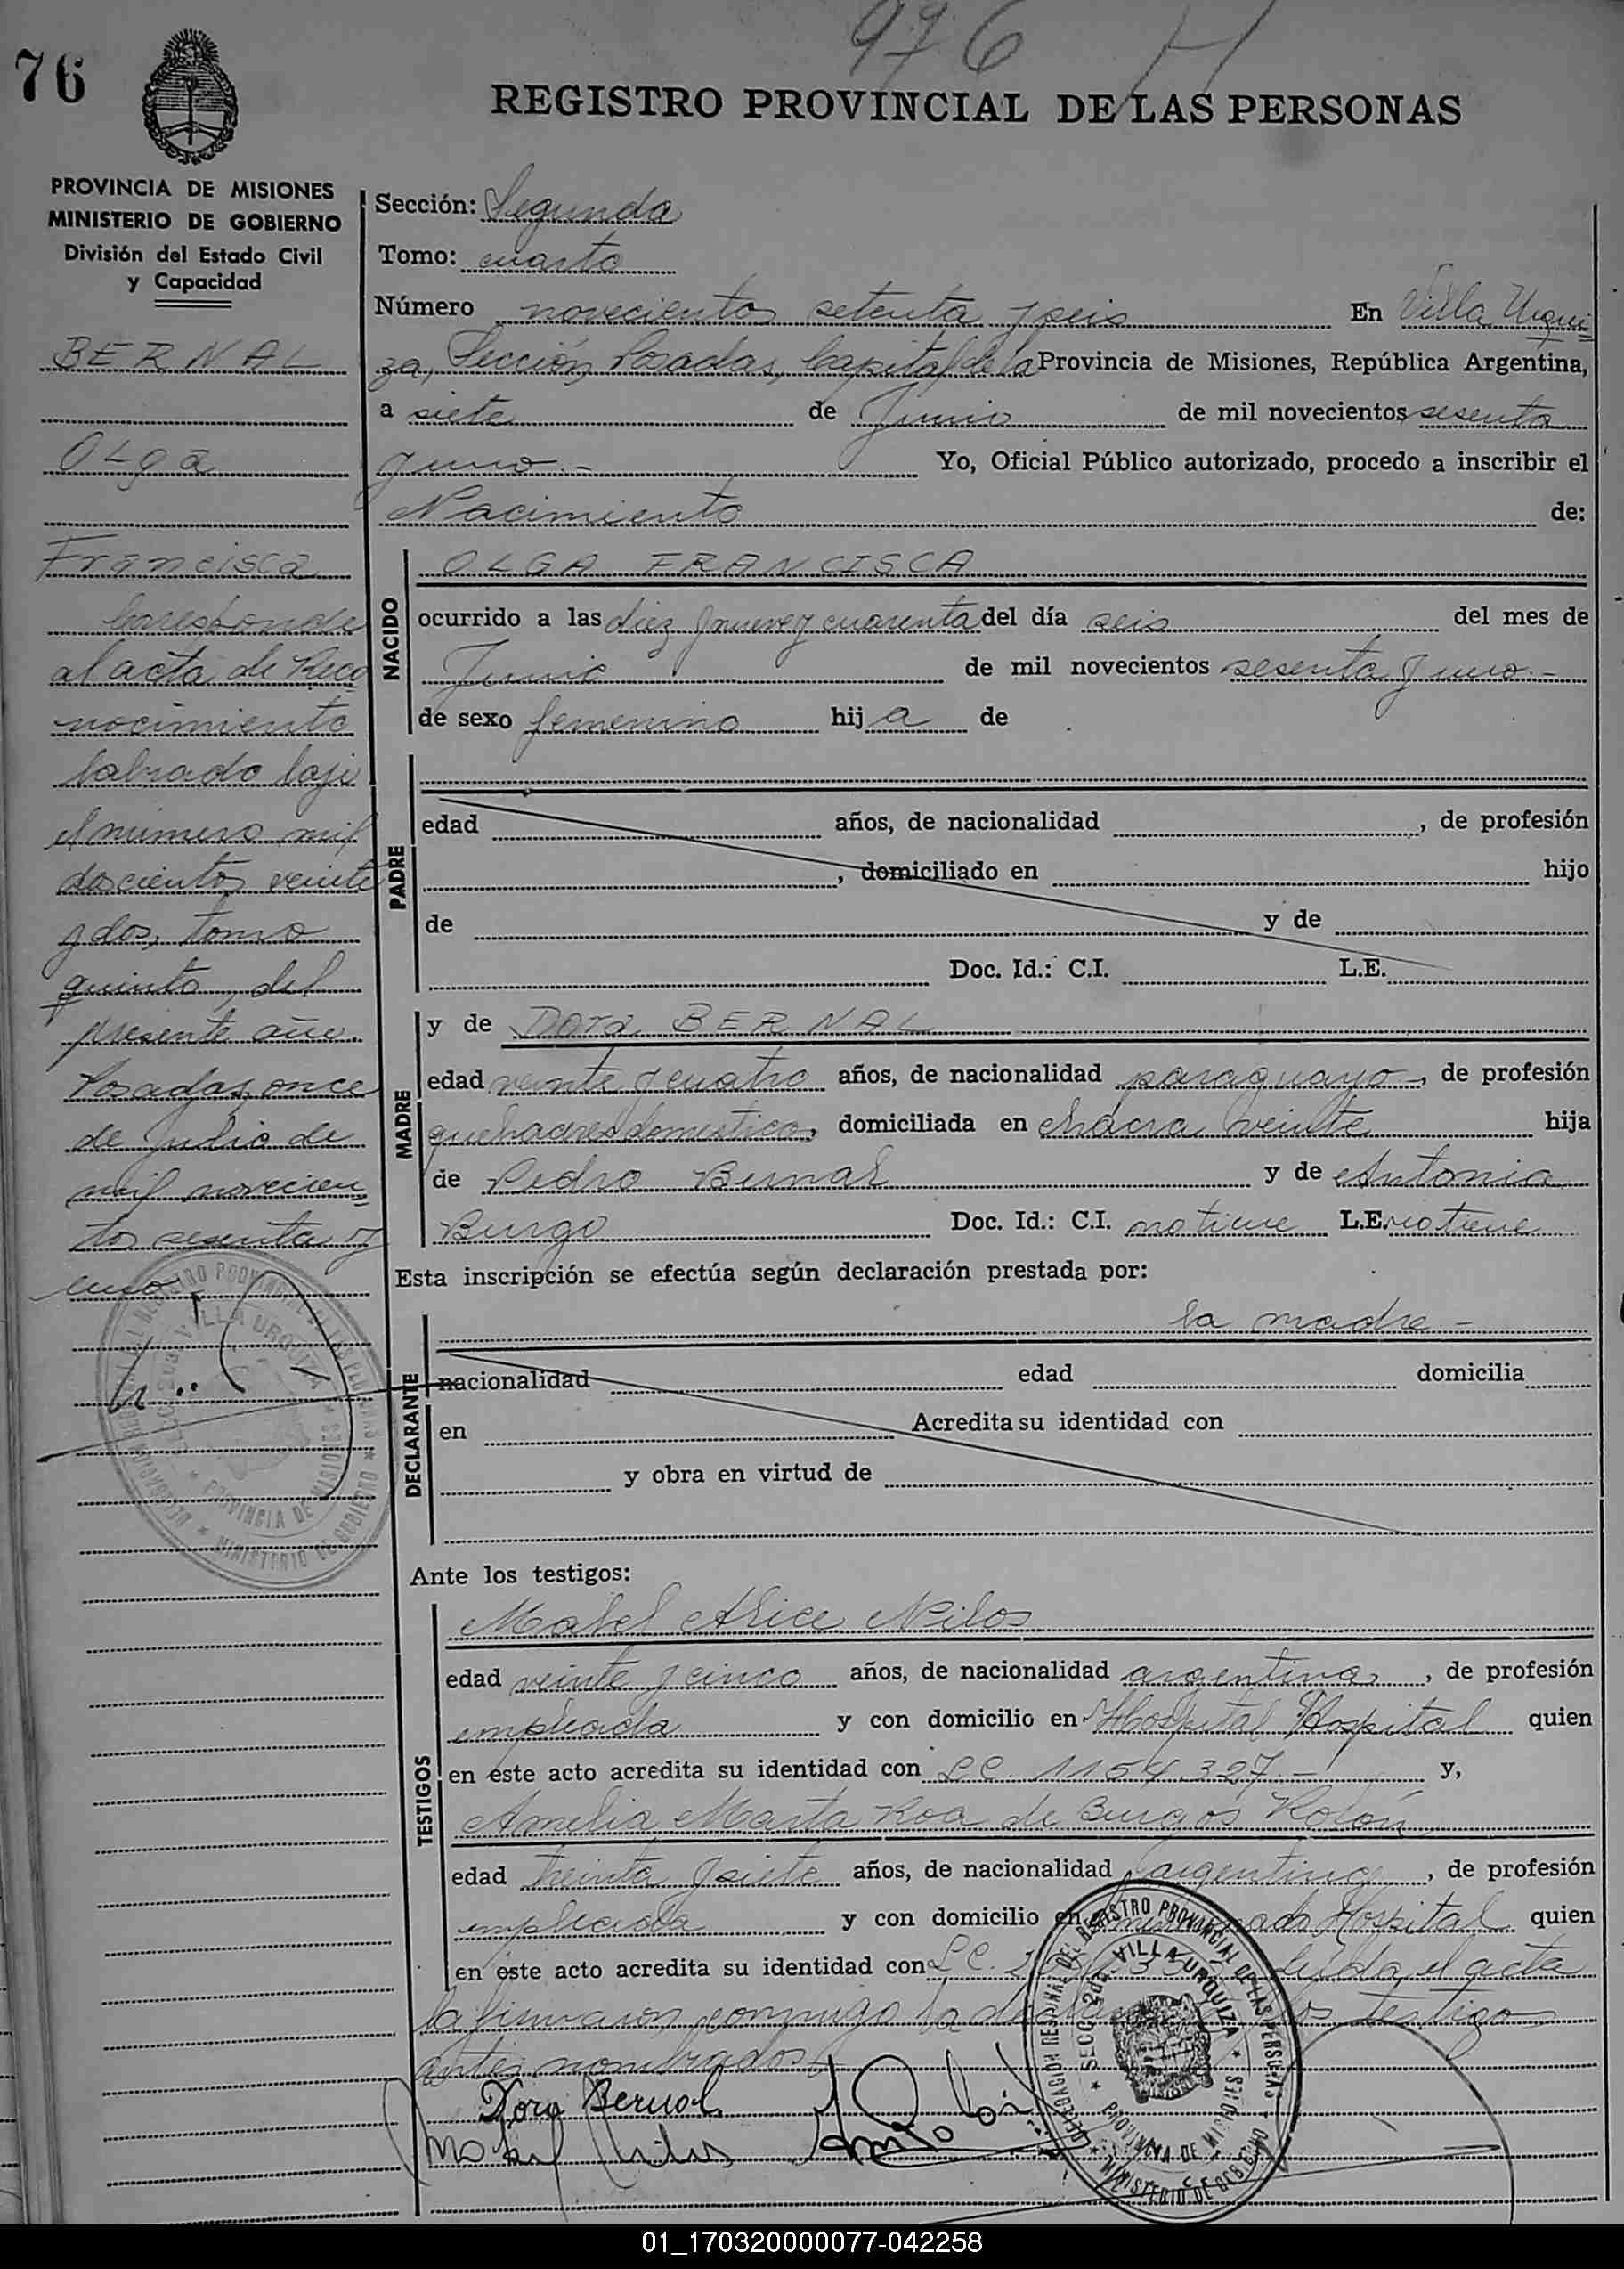 976
76
REGISTRO PROVINCIAL DE LAS PERSONAS
PROVINCIA DE MISIONES
MINISTERIO DE GOBIERNO
División del Estado Civil
y Capacidad
BERNAL
Olga
Francisca
Corresponde
al acta de Reco
nocimiento
labrado bajo
el número mil
doscientos veinte
y dos, tomo
quinto, del
presente año.
Posadas, once
de Julio de
mil novecien
tos sesenta y
uno.-
Sección: Segunda
Tomo: cuarto
Número novecientos setenta y seis En Villa Urqui
za, Sección, Posadas, Capital de la Provincia de Misiones, República Argentina,
a siete de Junio de mil novecientos sesenta
y uno.- Yo, Oficial Público autorizado, procedo a inscribir el
Nacimiento de:
NACIDO
OLGA FRANCISCA
ocurrido a las diez y nueve y cuarenta del día seis del mes de
Junio de mil novecientos sesenta y uno.-
de sexo femenino hija de
PADRE
edad años, de nacionalidad , de profesión
, domiciliado en hijo
de y de
Doc. Id.: C.I. L.E.
MADRE
y de Dora BERNAL
edad veinte y cuatro años, de nacionalidad paraguayo-, de profesión
quehaceres domesticos, domiciliada en chacra veinte hija
de Pedro Bernal y de Antonia
Burgo Doc. Id.: C.I. no tiene L.E. no tiene
Esta inscripción se efectúa según declaración prestada por:
DECLARANTE
la madre -
nacionalidad edad domicilia
en Acredita su identidad con
y obra en virtud de
Ante los testigos:
TESTIGOS
Mabel Alice Nilos
edad veinte y cinco años, de nacionalidad argentina, de profesión
empleada y con domicilio en Hospital Hospital quien
en este acto acredita su identidad con L.C. 1154327.- y,
Amelia Marta Roa de Burgos Rolón
edad treinta y siete años, de nacionalidad argentina, de profesión
empleada y con domicilio en Hospital quien
en este acto acredita su identidad con L.C. Leída el acta
la firmaron conmigo la los testigos
antes nombrados
Dora Bernal
DELEGACION REGIONAL DEL REGISTRO PROVINCIAL DE LAS PERSONAS
SECC. 2da. VILLA URQUIZA
PROVINCIA DE MISIONES
MINISTERIO DE GOBIERNO
01_170320000077-042258